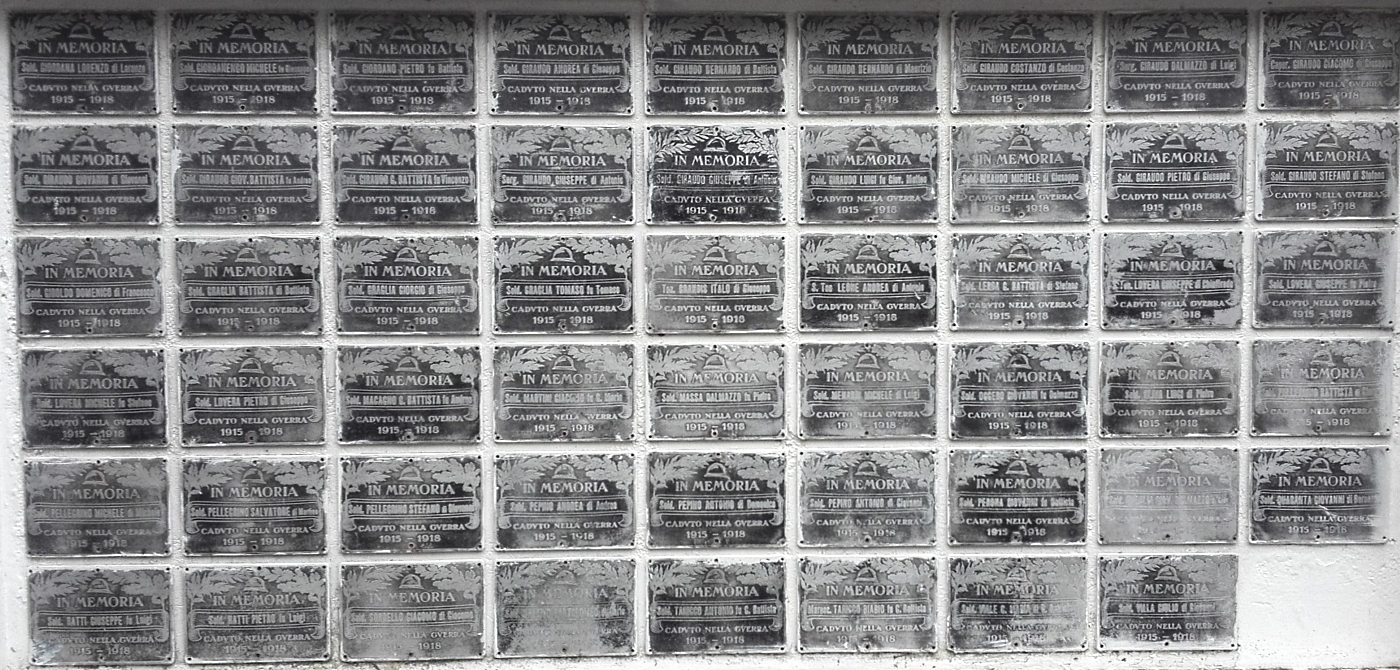 IN MEMORIA
Sold. GIORDANA LORENZO di Lorenzo
CADVTO NELLA GVERRA
1915 - 1918
IN MEMORIA
Sold. GIORDANENGO MICHELE fu
CADVTO NELLA GVERRA
1915 - 1918
IN MEMORIA
Sold. GIORDANO PIETRO fu Battista
CADVTO NELLA GVERRA
1915 - 1918
IN MEMORIA
Sold. GIRAUDO ANDREA di Giuseppe
CADVTO NELLA GVERRA
1915 - 1918
IN MEMORIA
Sold. GIRAUDO BERNARDO di Battista
CADVTO NELLA GVERRA
1915 - 1918
IN MEMORIA
Sold. GIRAUDO BERNARDO di Maurizio
CADVTO NELLA GVERRA
1915 - 1918
IN MEMORIA
Sold. GIRAUDO COSTANZO di Costanzo
CADVTO NELLA GVERRA
1915 - 1918
IN MEMORIA
Serg. GIRAUDO DALMAZZO di Luigi
CADVTO NELLA GVERRA
1915 - 1918
IN MEMORIA
Capor. GIRAUDO GIACOMO di Giuseppe
CADVTO NELLA GVERRA
1915 - 1918
IN MEMORIA
Sold. GIRAUDO GIOVANNI di Giovanni
CADVTO NELLA GVERRA
1915 - 1918
IN MEMORIA
Sold. GIRAUDO GIOV. BATTISTA fu Andrea
CADVTO NELLA GVERRA
1915 - 1918
IN MEMORIA
Sold. GIRAUDO G. BATTISTA fu Vincenzo
CADVTO NELLA GVERRA
1915 - 1918
IN MEMORIA
Serg. GIRAUDO GIUSEPPE di Antonio
CADVTO NELLA GVERRA
1915 - 1918
IN MEMORIA
Sold. GIRAUDO GIUSEPPE di
CADVTO NELLA GVERRA
1915 - 1918
IN MEMORIA
Sold. GIRAUDO LUIGI fu Giov. Matteo
CADVTO NELLA GVERRA
1915 - 1918
IN MEMORIA
Sold. GIRAUDO MICHELE di Giuseppe
CADVTO NELLA GVERRA
1915 - 1918
IN MEMORIA
Sold. GIRAUDO PIETRO di Giuseppe
CADVTO NELLA GVERRA
1915 - 1918
IN MEMORIA
Sold. GIRAUDO STEFANO di Stefano
CADVTO NELLA GVERRA
1915 - 1918
IN MEMORIA
Sold. GIROLDO DOMENICO di Francesco
CADVTO NELLA GVERRA
1915 - 1918
IN MEMORIA
Sold. GRAGLIA BATTISTA di Battista
CADVTO NELLA GVERRA
1915 - 1918
IN MEMORIA
Sold. GRAGLIA GIORGIO di Giuseppe
CADVTO NELLA GVERRA
1915 - 1918
IN MEMORIA
Sold. GRAGLIA TOMASO fu Tomaso
CADVTO NELLA GVERRA
1915 - 1918
IN MEMORIA
Ten. GRANDIS ITALO di Giuseppe
CADVTO NELLA GVERRA
1915 - 1918
IN MEMORIA
S. Ten LERDE ANDREA di Antonio
CADVTO NELLA GVERRA
1915 - 1918
IN MEMORIA
Sold. LERDA G. BATTISTA di Stefano
CADVTO NELLA GVERRA
1915 - 1918
IN MEMORIA
S. Ten. LOVERA GIUSEPPE di Chiaffredo
CADVTO NELLA GVERRA
1915 - 1918
IN MEMORIA
Sold. LOVERA GIUSEPPE fu Pietro
CADVTO NELLA GVERRA
1915 - 1918
IN MEMORIA
Sold. LOVERA MICHELE fu Stefano
CADVTO NELLA GVERRA
1915 - 1918
IN MEMORIA
Sold. LOVERA PIETRO di Giuseppe
CADVTO NELLA GVERRA
1915 - 1918
IN MEMORIA
Sold. MACAGNO G. BATTISTA fu Andrea
CADVTO NELLA GVERRA
1915 - 1918
IN MEMORIA
Sold. MARTINI GIACOMO fu G. Maria
CADVTO NELLA GVERRA
1915 - 1918
IN MEMORIA
Sold. MASSA DALMAZZO fu Pietro
CADVTO NELLA GVERRA
1915 - 1918
IN MEMORIA
Sold. MENARDI MICHELE di Luigi
CADVTO NELLA GVERRA
1915 - 1918
IN MEMORIA
Sold. OGGERO GIOVANNI fu Dalmazzo
CADVTO NELLA GVERRA
1915 - 1918
IN MEMORIA
Sold. LUIGI di Pietro
CADVTO NELLA GVERRA
1915 - 1918
IN MEMORIA
Sold. PELLEGRINO BATTISTA
CADVTO NELLA GVERRA
1915 - 1918
IN MEMORIA
Sold. PELLEGRINO MICHELE
CADVTO NELLA GVERRA
1915 - 1918
IN MEMORIA
Sold. PELLEGRINO SALVATORE di Martino
CADVTO NELLA GVERRA
1915 - 1918
IN MEMORIA
Sold. PELLEGRINO STEFANO di
CADVTO NELLA GVERRA
1915 - 1918
IN MEMORIA
Sold. PEPINO ANDREA di Andrea
CADVTO NELLA GVERRA
1915 - 1918
IN MEMORIA
Sold. PEPINO ANTONIO di Domenico
CADVTO NELLA GVERRA
1915 - 1918
IN MEMORIA
Sold. PEPINO ANTONIO di Giovanni
CADVTO NELLA GVERRA
1915 - 1918
IN MEMORIA
Sold. PERONA GIOVANNI fu Battista
CADVTO NELLA GVERRA
1915 - 1918
IN MEMORIA
IN MEMORIA
Sold. QUARANTA GIOVANNI di
CADVTO NELLA GVERRA
1915 - 1918
IN MEMORIA
Sold. RATTI GIUSEPPE fu Luigi
CADVTO NELLA GVERRA
1915 - 1918
IN MEMORIA
Sold. RATTI PIETRO fu Luigi
CADVTO NELLA GVERRA
1915 - 1918
IN MEMORIA
Sold. SORDELLO GIACOMO di Giuseppe
CADVTO NELLA GVERRA
1915 - 1918
IN MEMORIA
IN MEMORIA
Sold. TARICCO ANTONIO fu G. Battista
CADVTO NELLA GVERRA
1915 - 1918
IN MEMORIA
Maresc. TARICCO BIAGIO fu G. Battista
CADVTO NELLA GVERRA
1915 - 1918
IN MEMORIA
Sold. VIALE G. MARIA
CADVTO NELLA GVERRA
1915 - 1918
IN MEMORIA
Sold. VILLA GIULIO di
CADVTO NELLA GVERRA
1915 - 1918